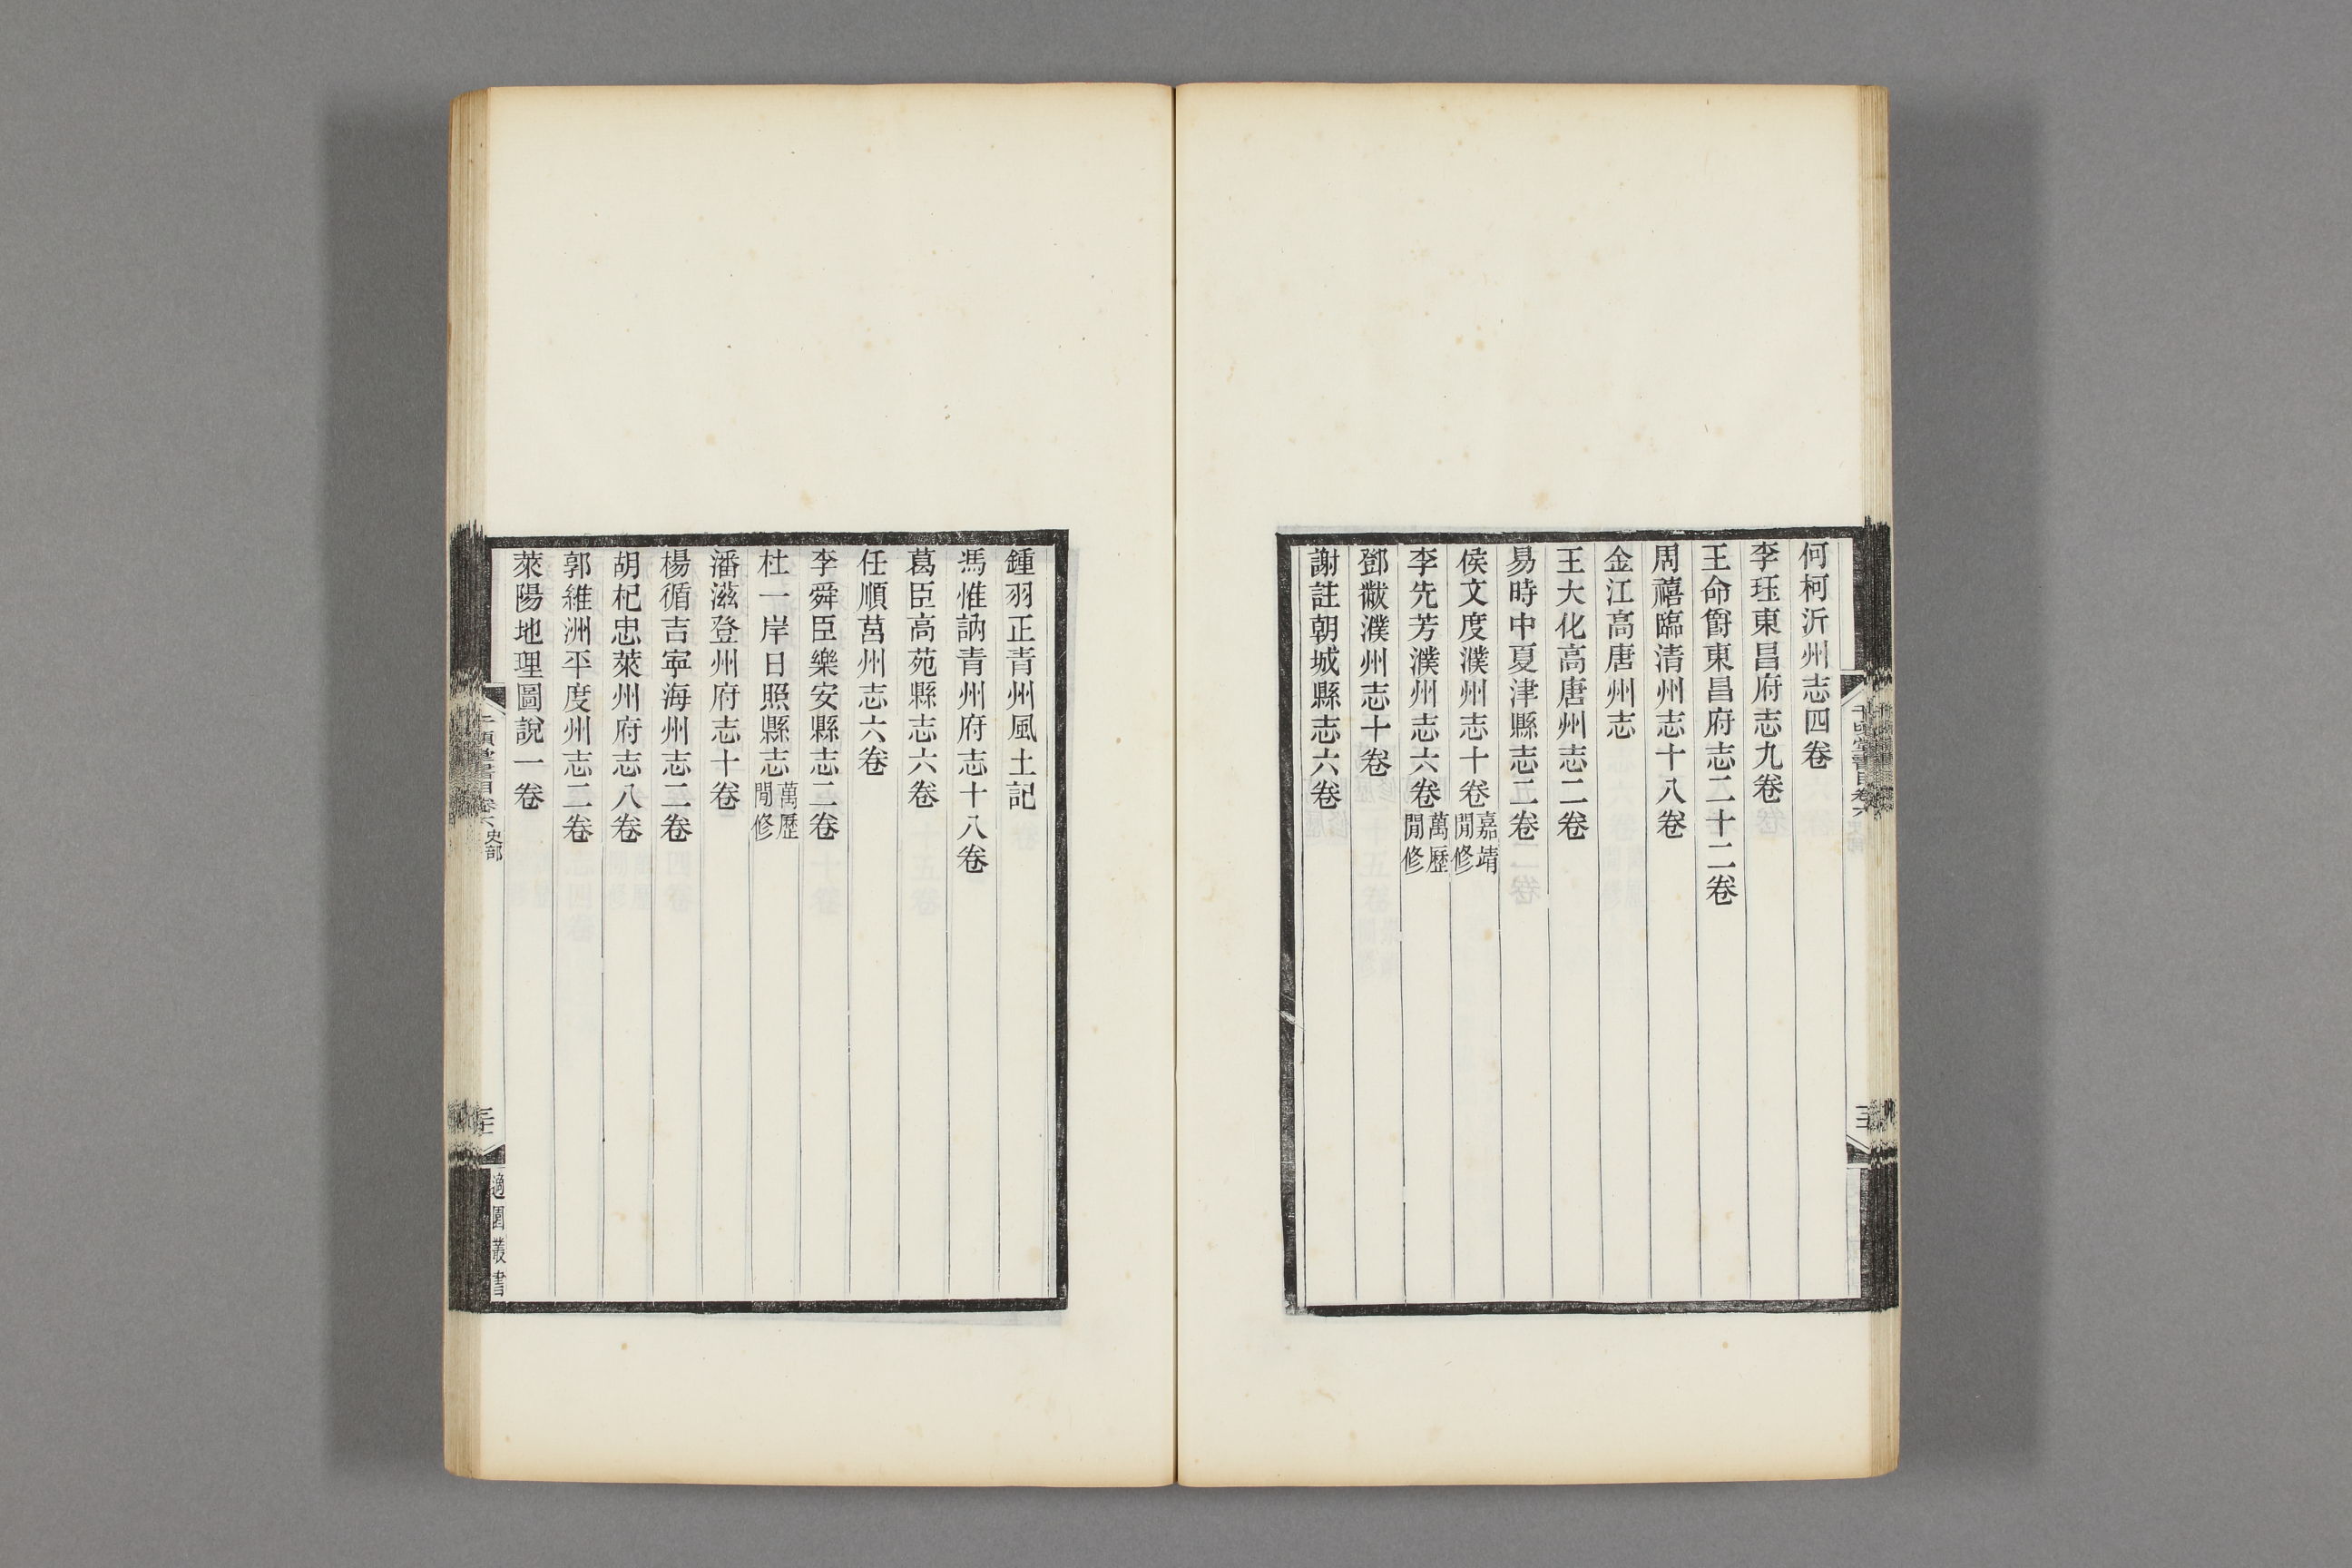 何柯沂州志四卷
李珏東昌府志九卷
王命爵東昌府志二十二卷
周禧臨清州志十八卷
金江高唐州志
王大化高唐州志二卷
易時中夏津縣志五卷
侯文度濮州志十卷嘉靖閒修
李先芳濮州志六卷萬歷閒修
鄧黻濮州志十卷
謝註朝城縣志六卷
鍾羽正青州風土記
馮惟訥青州府志十八卷
葛臣高苑縣志六卷
任順莒州志六卷
李舜臣樂安縣志二卷
杜一岸日照縣志萬歷閒修
潘滋登州府志十卷
楊循吉寧海州志二卷
胡杞忠萊州府志八卷
郭維洲平度州志二卷
萊陽地理圖說一卷
千頃堂書目卷六史部
適園叢書